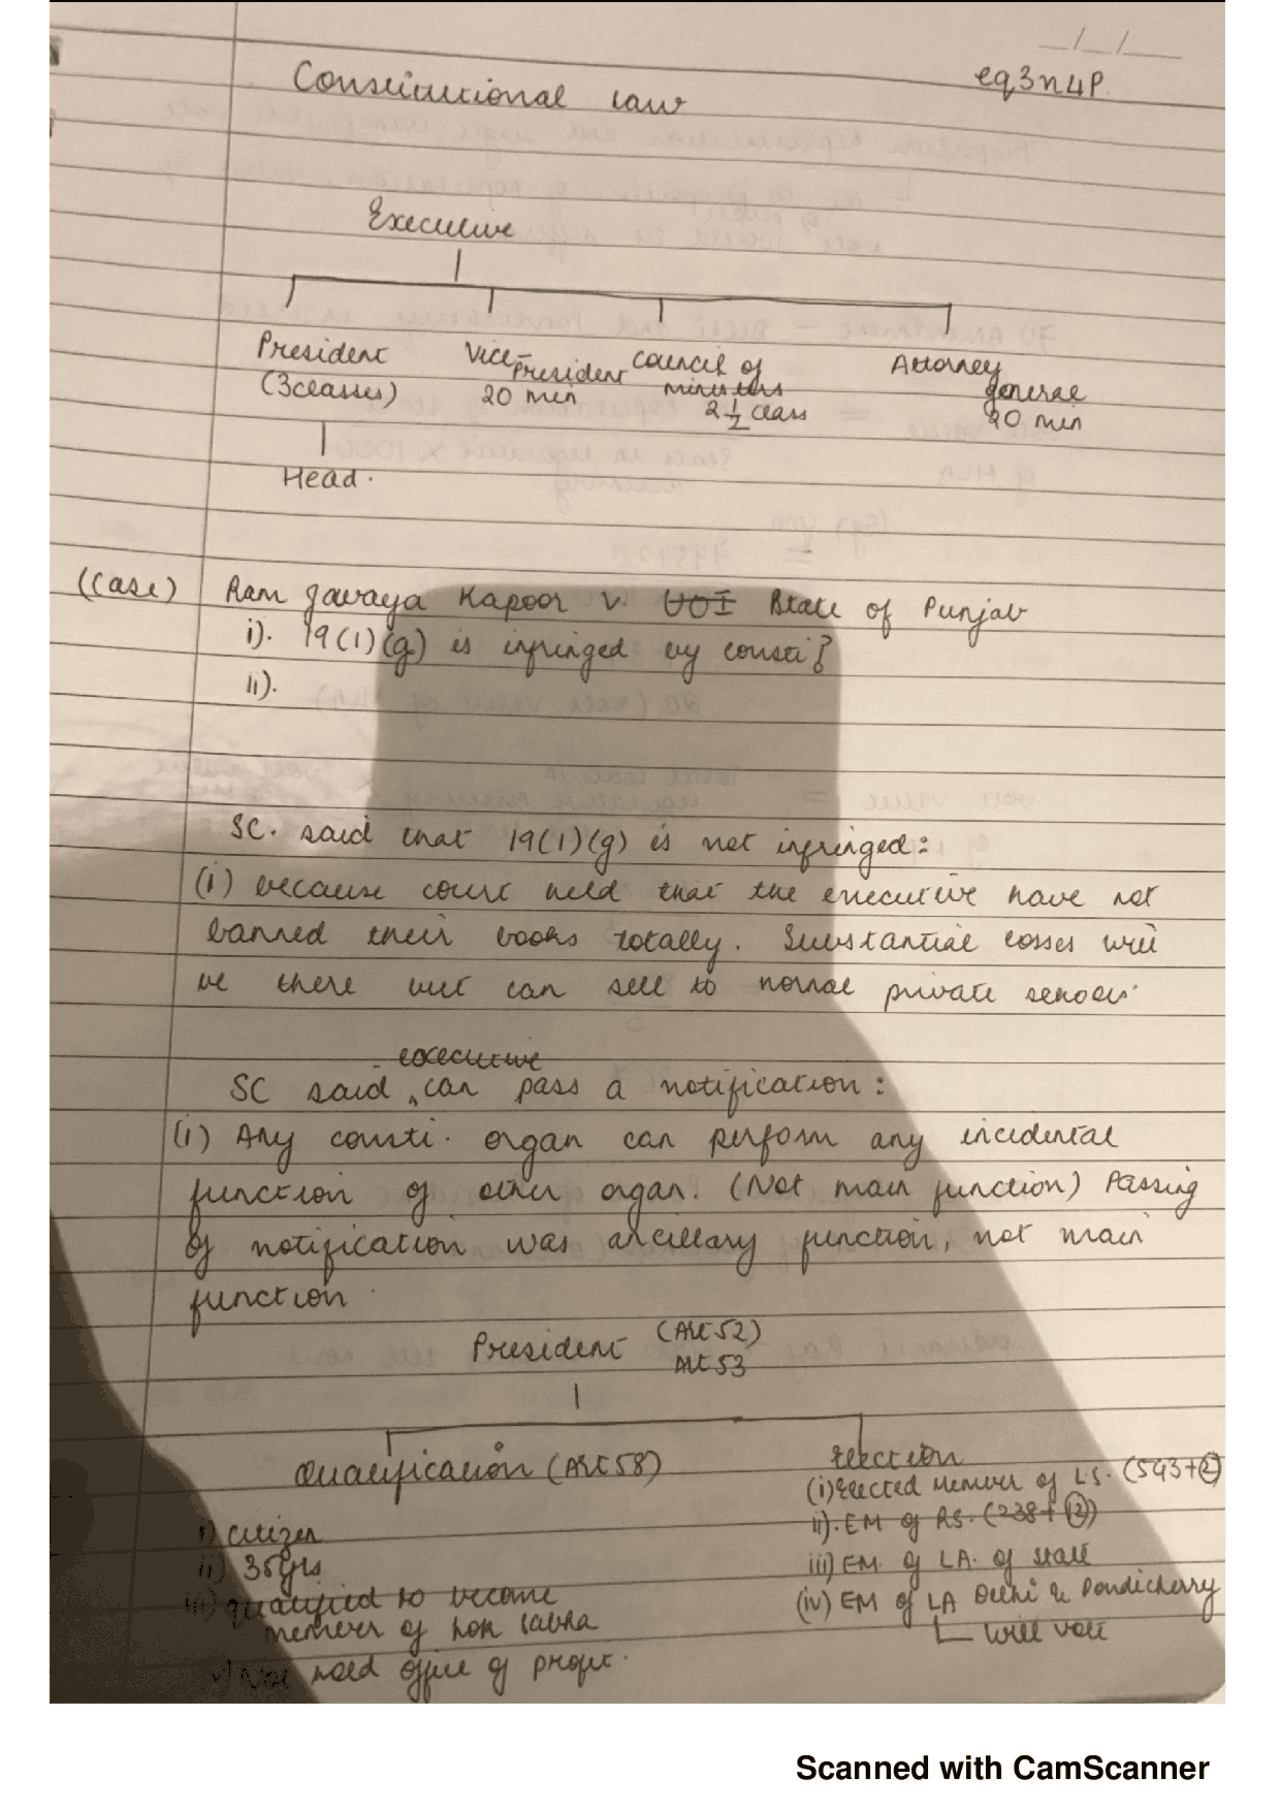 __/__/____
Constitutional law
eq3n4P.
Executive
President
(3classes)
Vice-President
20 min
Council of
ministers
2 1/2 class
Attorney
general
20 min
Head.
(Case) Ram Jawaya Kapoor v. UOI State of Punjab
i). 19(1)(g) is infringed by consti?
ii).
SC. said that 19(1)(g) is not infringed:
(i) because court held that the executive have not
banned their books totally. Substantial losses will
be there but can sell to normal private
executive
SC said, can pass a notification:
(i) Any consti. organ can perform any incidental
function of other organ. (Not main function) Passing
of notification was ancillary function, not main
function
President (Art 52)
Art 53
Qualification (Art 58)
i) citizen
ii) 35yrs
iii) qualified to become
member of Lok Sabha
v) Not hold office of profit.
Election
(i) Elected Member of L.S. (543+2)
ii). EM of RS. (238+12)
iii) EM. of L.A. of state
(iv) EM of LA Delhi & Pondicherry
will vote
Scanned with CamScanner